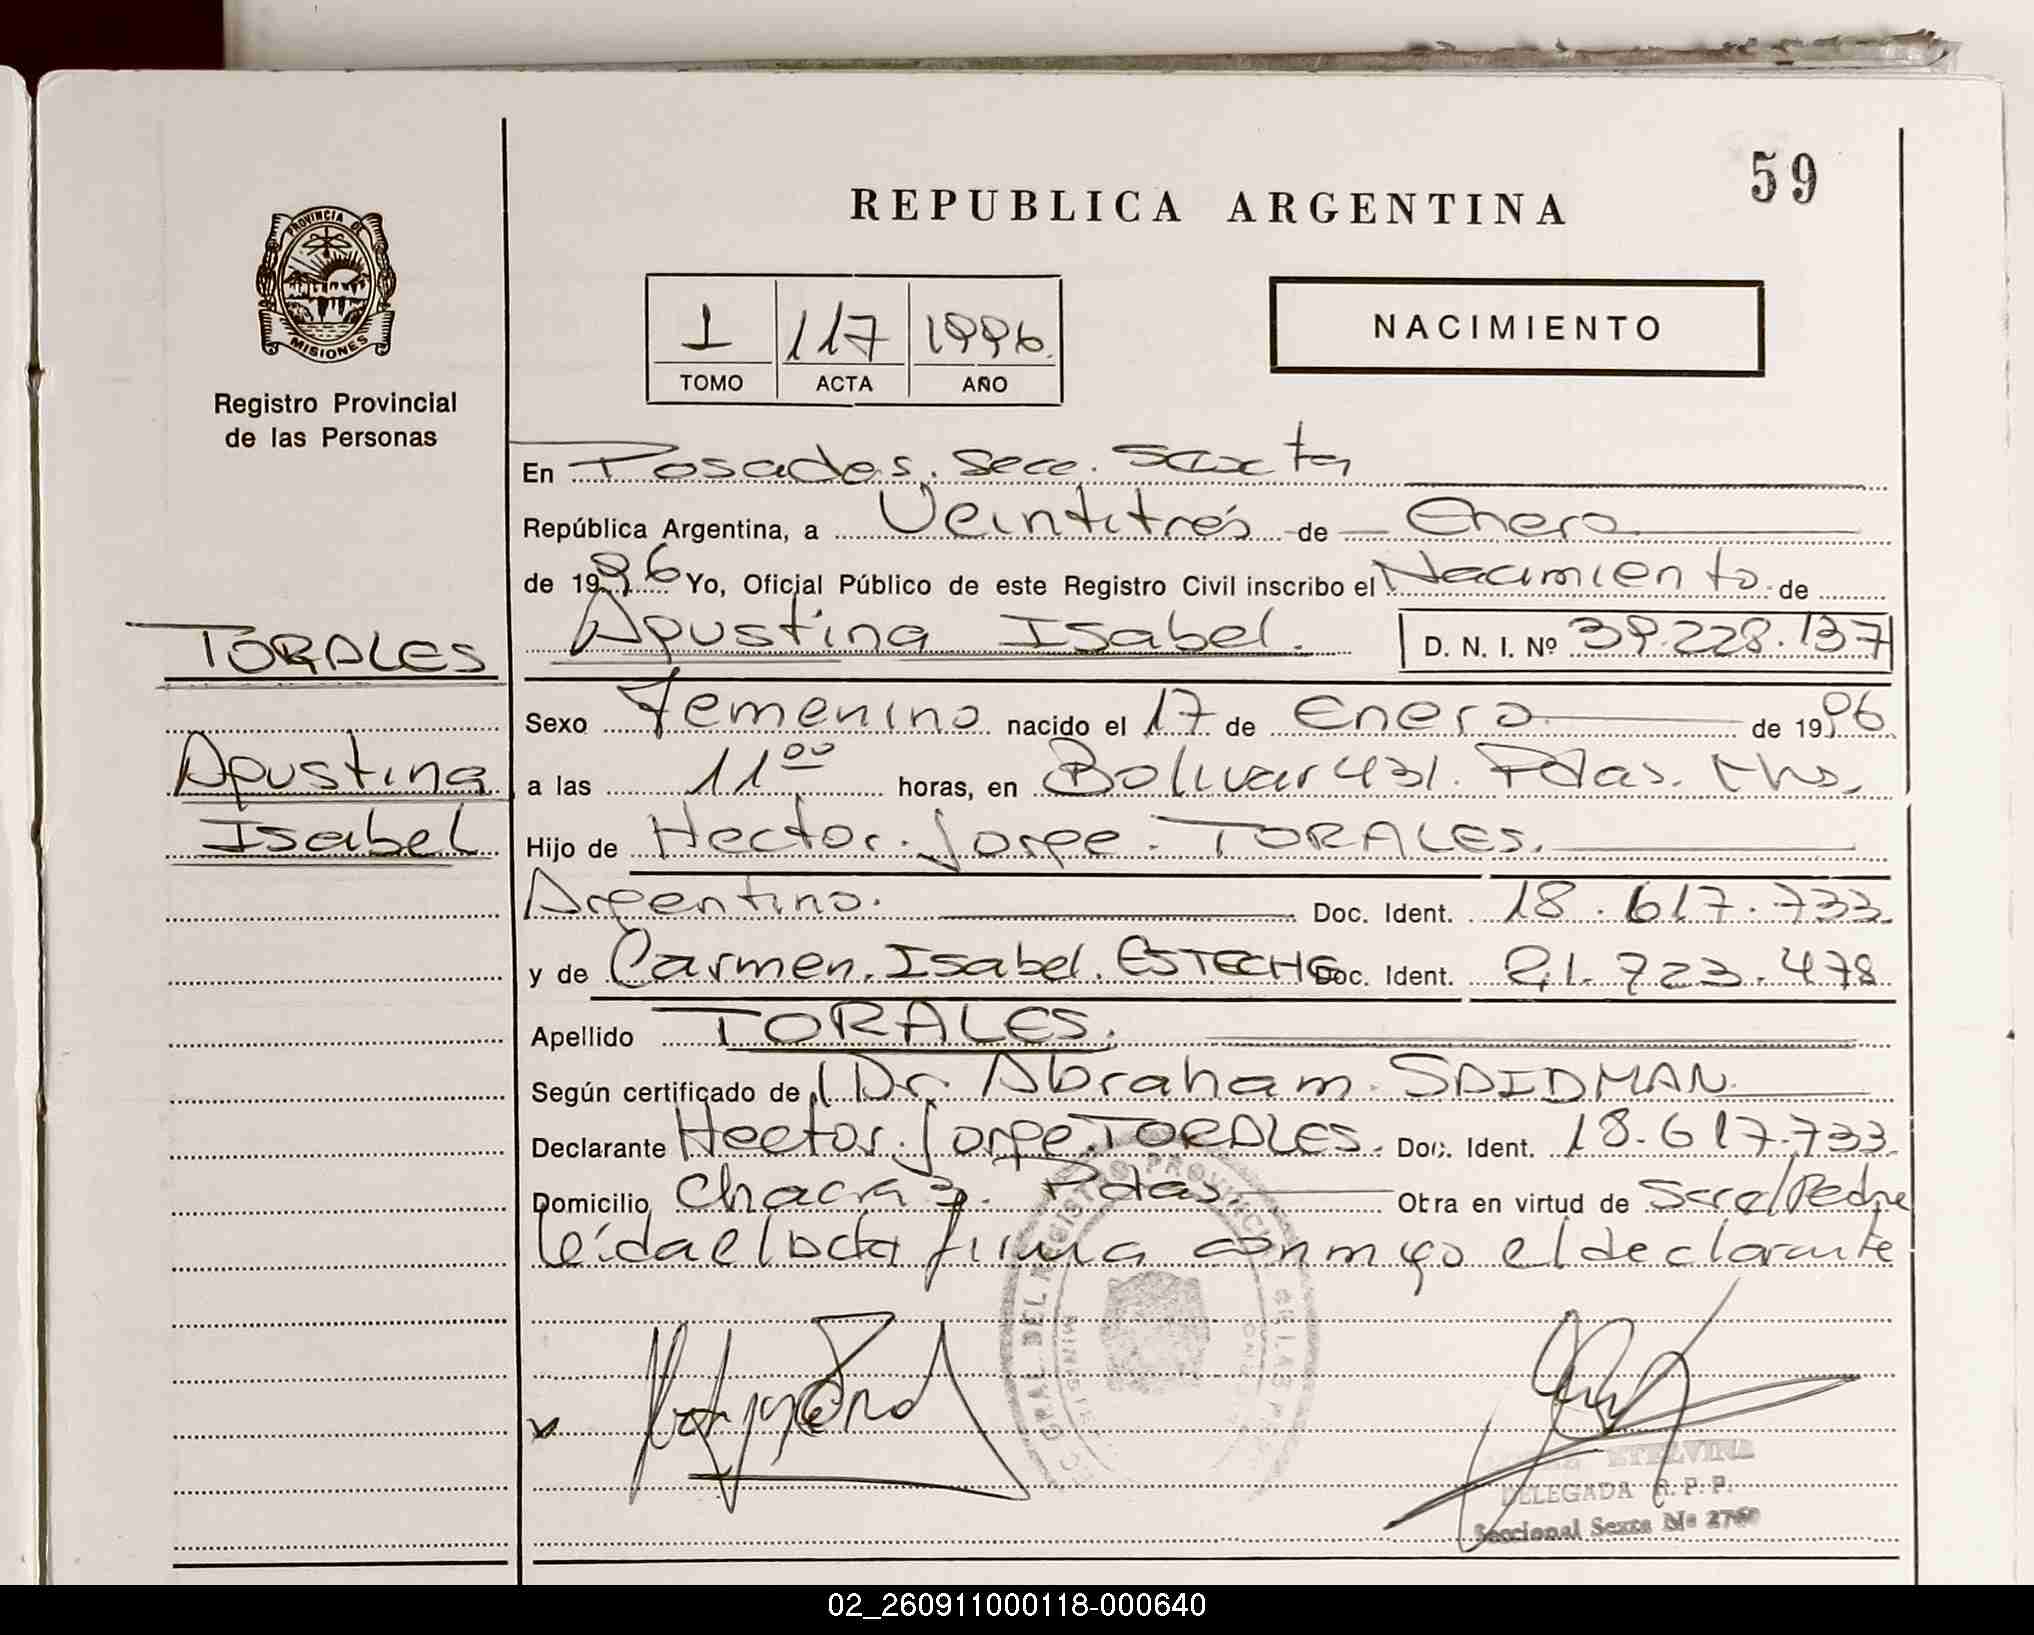 59
REPUBLICA ARGENTINA
PROVINCIA DE
MISIONES
Registro Provincial
de las Personas
1 117 1996.
TOMO ACTA AÑO
NACIMIENTO
En Posadas. Secc. Sexta
República Argentina, a Veintitrés de Enero
de 1996 Yo, Oficial Público de este Registro Civil inscribo el Nacimiento de
Agustina Isabel. D. N. I. Nº 39.228.137
TORALES
Agustina
Isabel
Sexo Femenino nacido el 17 de Enero de 1996
a las 11 00 horas, en Bolivar 431. Pdas. Mns.
Hijo de Hector Jorge TORALES.
Argentino. Doc. Ident. 18.617.733.
y de Carmen Isabel ESTECHE Doc. Ident. 21.723.478
Apellido TORALES.
Según certificado de Dr. Abraham SAIDMAN
Declarante Hector Jorge TORALES. Doc. Ident. 18.617.733.
Domicilio Chacra 3. Pdas. Otra en virtud de Ser el Padre
leída el Acta firma conmigo el declarante
ETELVINA
DELEGADA R. P. P.
Seccional Sexta
02_260911000118-000640